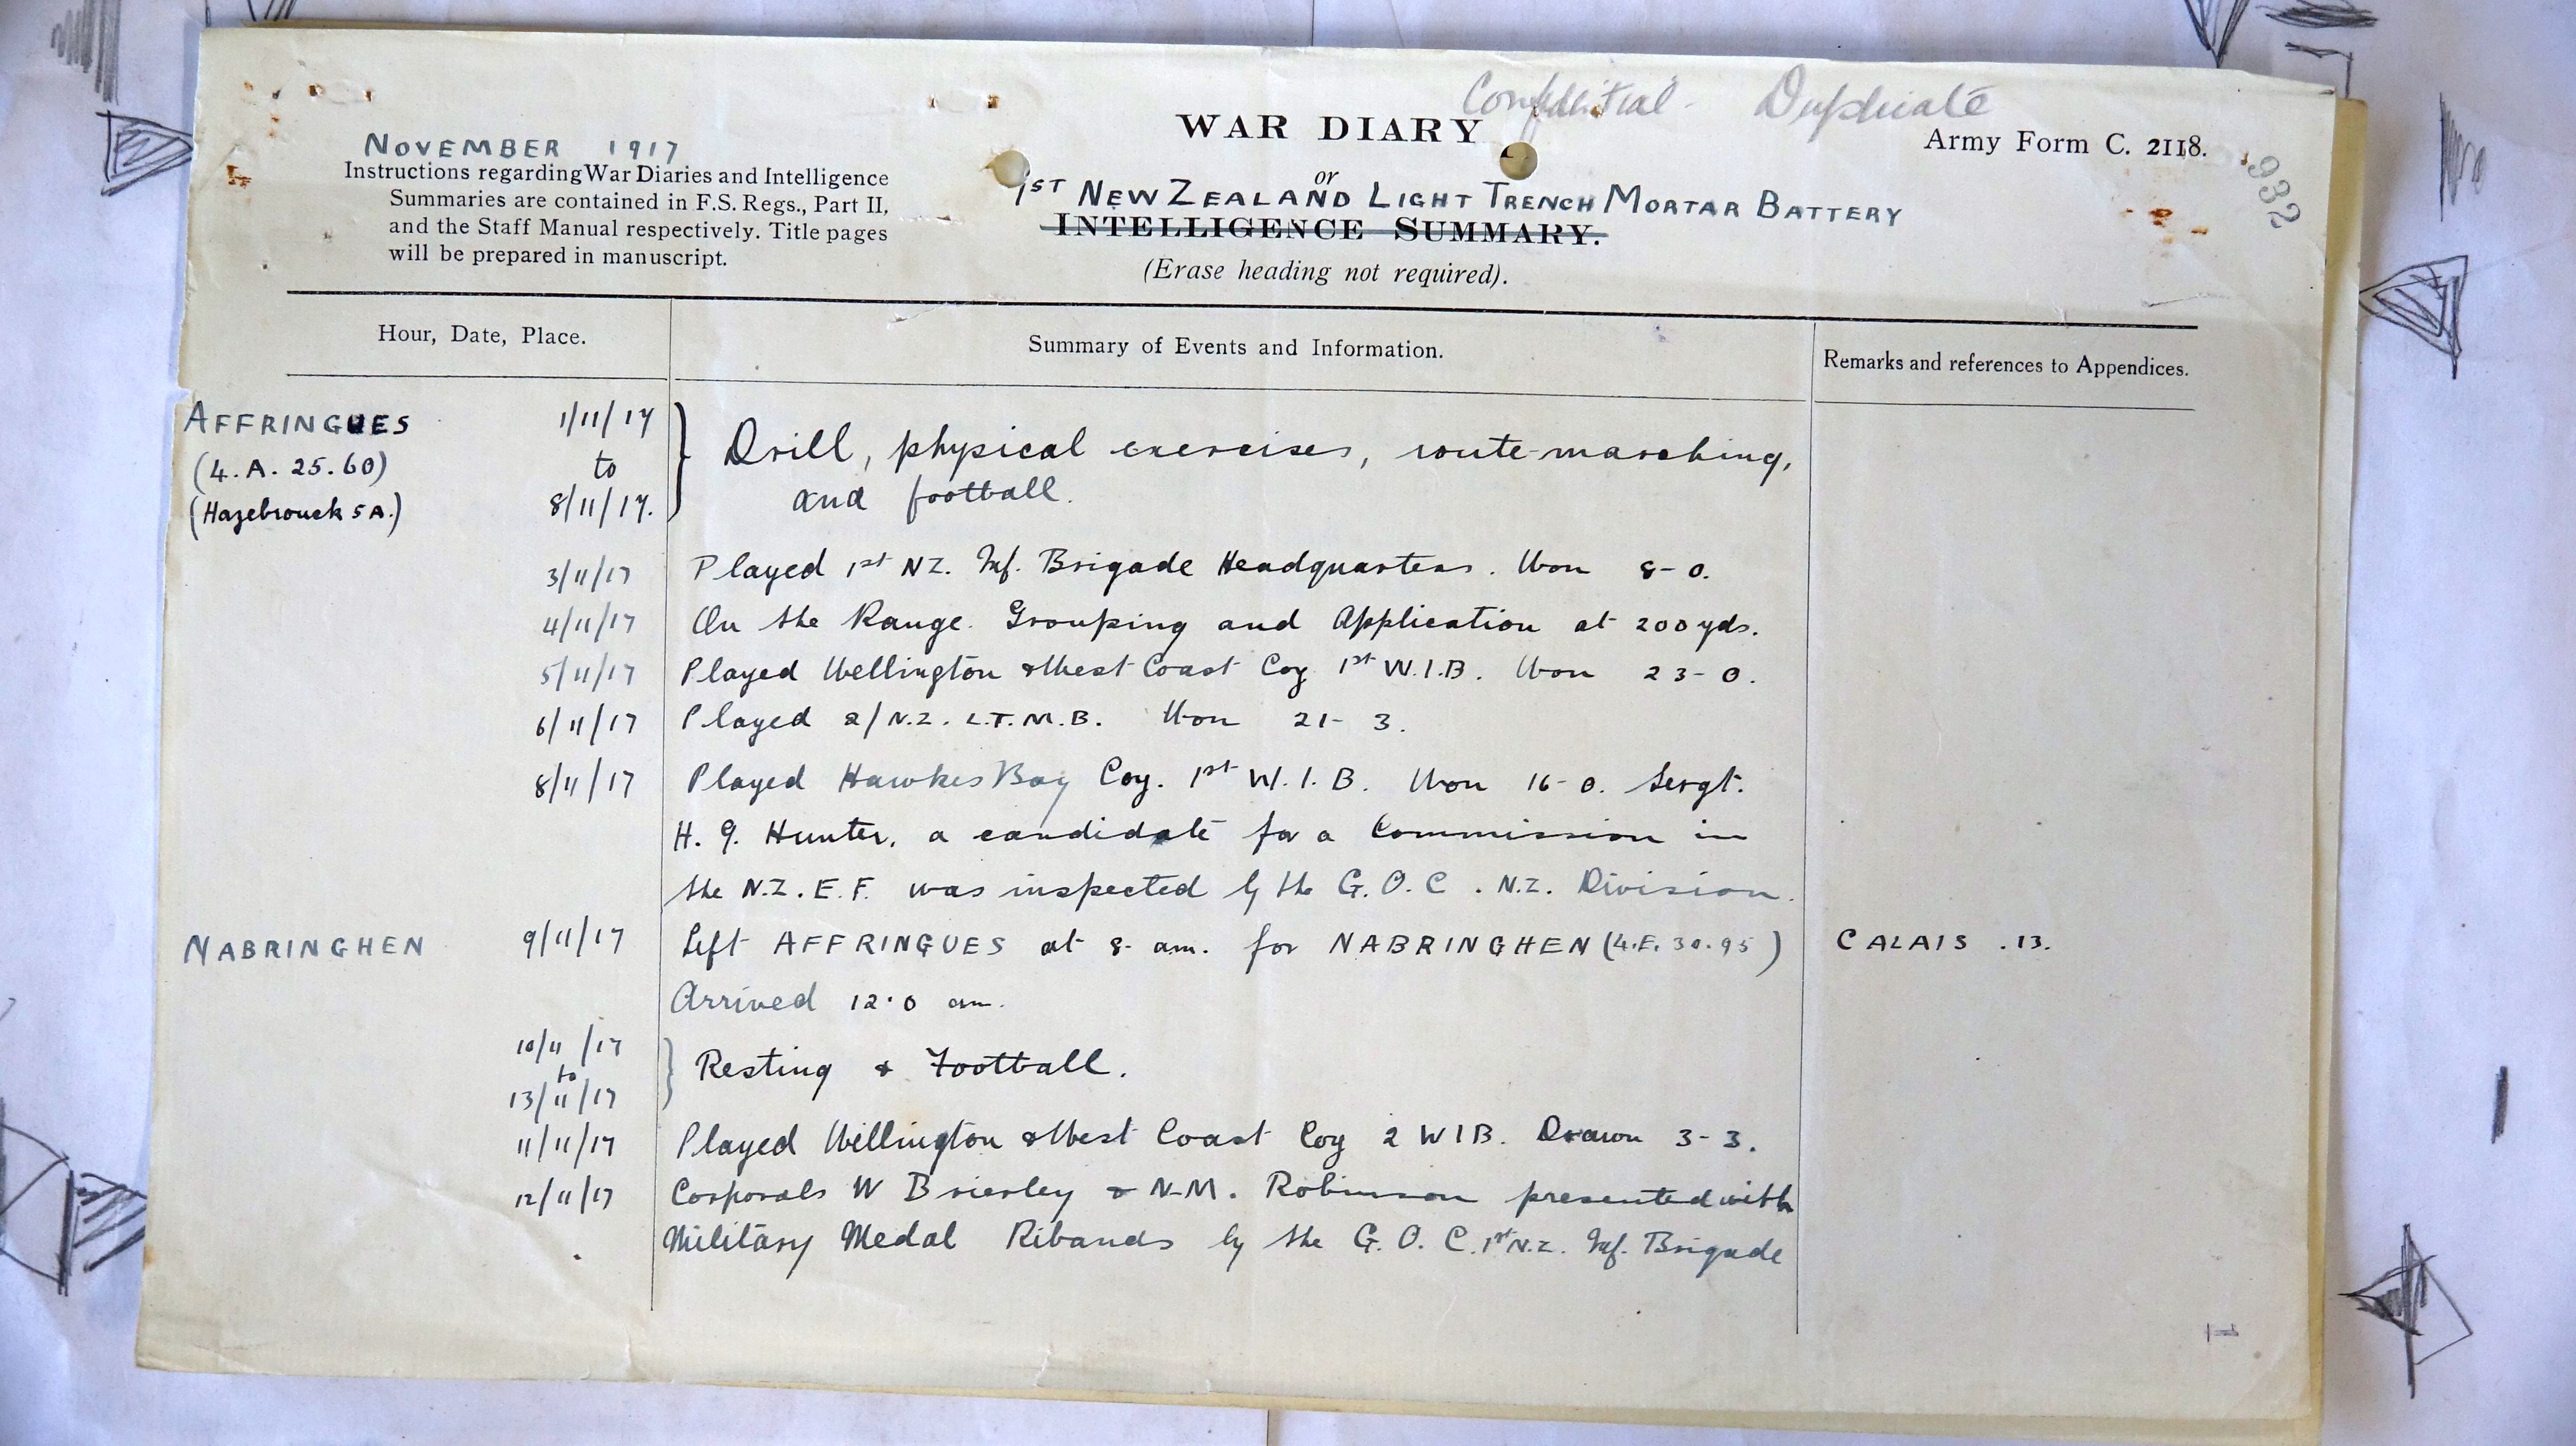 Confidential Duplicate
WAR DIARY
Army Form C. 2118.
932
NOVEMBER 1917
Instructions regarding War Diaries and Intelligence
Summaries are contained in F.S. Regs., Part II,
and the Staff Manual respectively. Title pages
will be prepared in manuscript.
or
1ST NEW ZEALAND LIGHT TRENCH MORTAR BATTERY
INTELLIGENCE SUMMARY.
(Erase heading not required).
Hour, Date, Place.
Summary of Events and Information.
Remarks and references to Appendices.
AFFRINGUES 1/11/17
(4. A. 25. 60) to
(Hazebrouck 5A.) 8/11/17.
Drill, physical exercises, route-marching,
and football.
3/11/17 Played 1st NZ. Inf. Brigade Headquarters. Won 8-0.
4/11/17 On the Range. Grouping and Application at 200 yds.
5/11/17 Played Wellington & West Coast Coy 1st W.I.B. Won 23-0.
6/11/17 Played 2/N.Z. L.T.M.B. Won 21-3.
8/11/17 Played Hawkes Bay Coy. 1st W.I.B. Won 16-0. Sergt.
H. G. Hunter, a candidate for a Commission in
the N.Z.E.F. was inspected by the G.O.C. N.Z. Division.
NABRINGHEN 9/11/17 Left AFFRINGUES at 8- am. for NABRINGHEN (4.E. 30.95) CALAIS .13.
Arrived 12.0 am.
10/11/17
to
13/11/17
Resting & Football.
11/11/17 Played Wellington & West Coast Coy 2 WIB. Drawn 3-3.
12/11/17 Corporals W Brierley & N-M. Robinson presented with
Military Medal Ribands by the G.O.C. 1st N.Z. Inf. Brigade
1